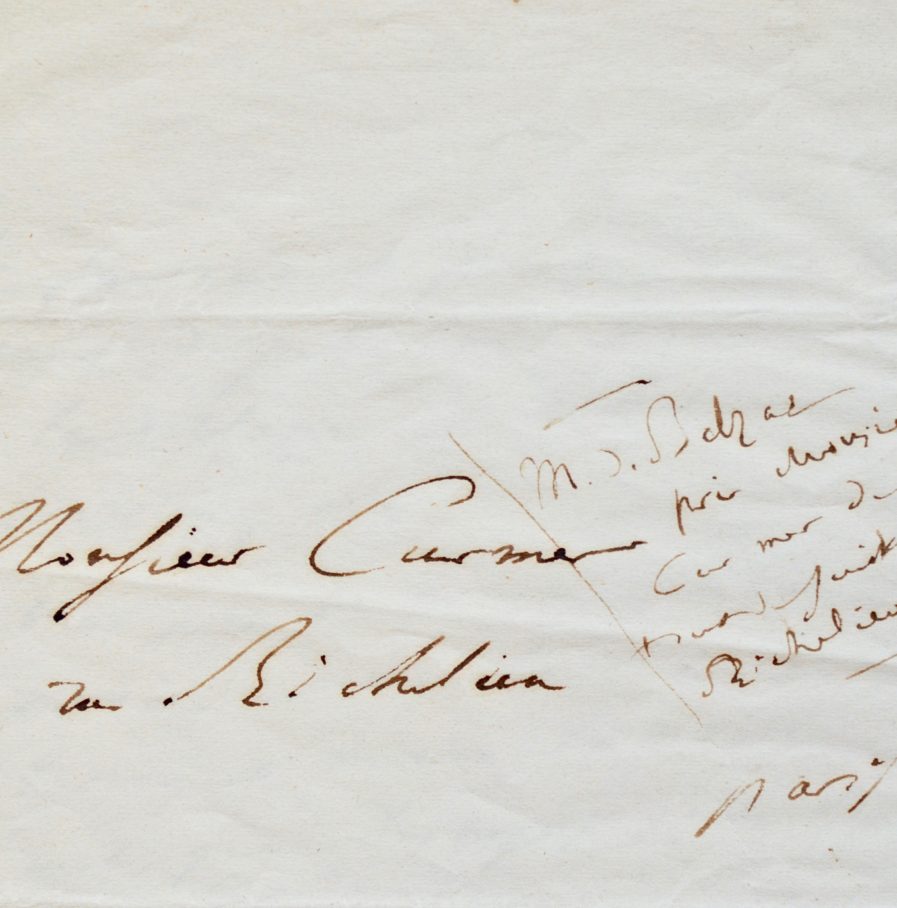 Monsieur Curmer
rue Richelieu
M. de Balzac
prie Monsie
Curmer de
Richelieu
paris